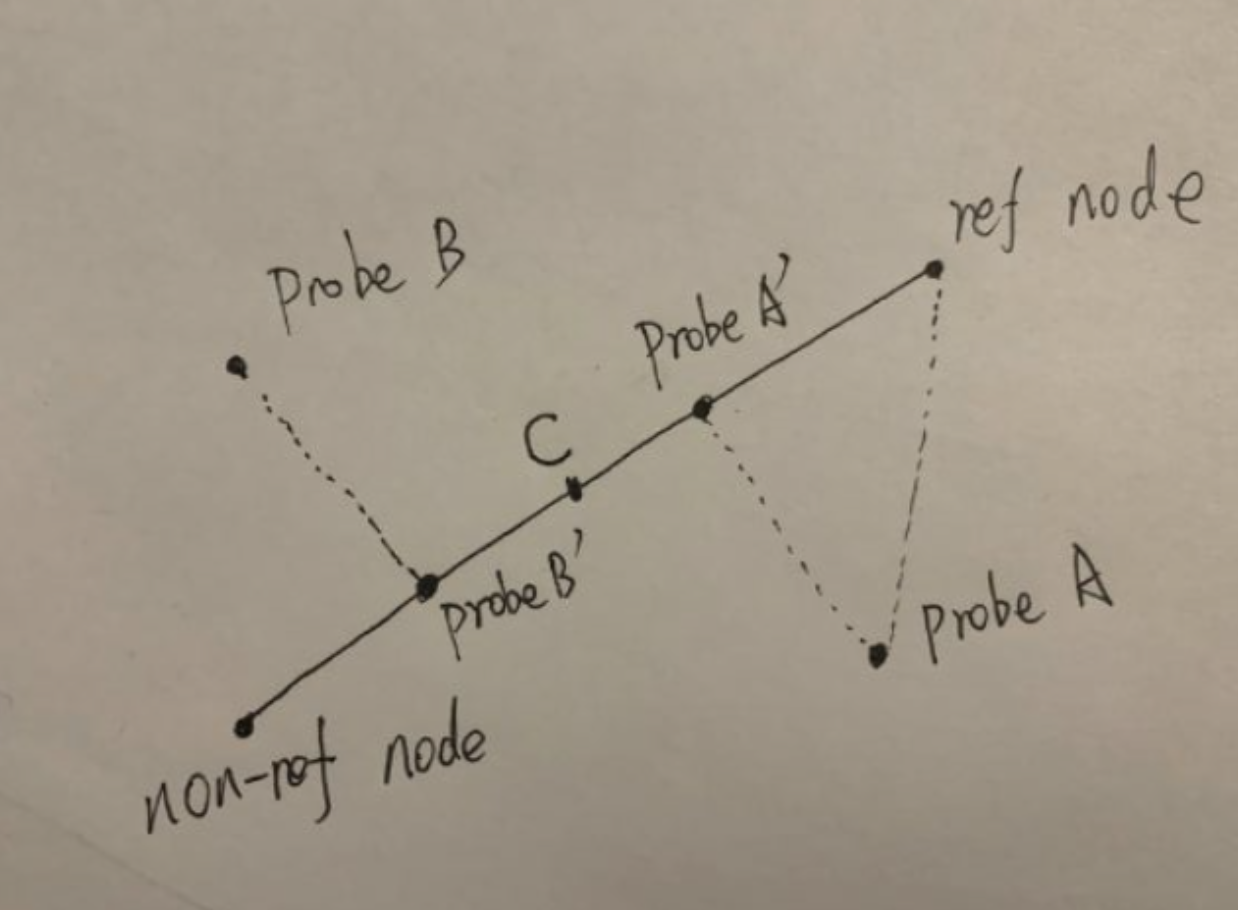 ref node
Probe B
Probe A'
C
probe B'
probe A
non-ref node